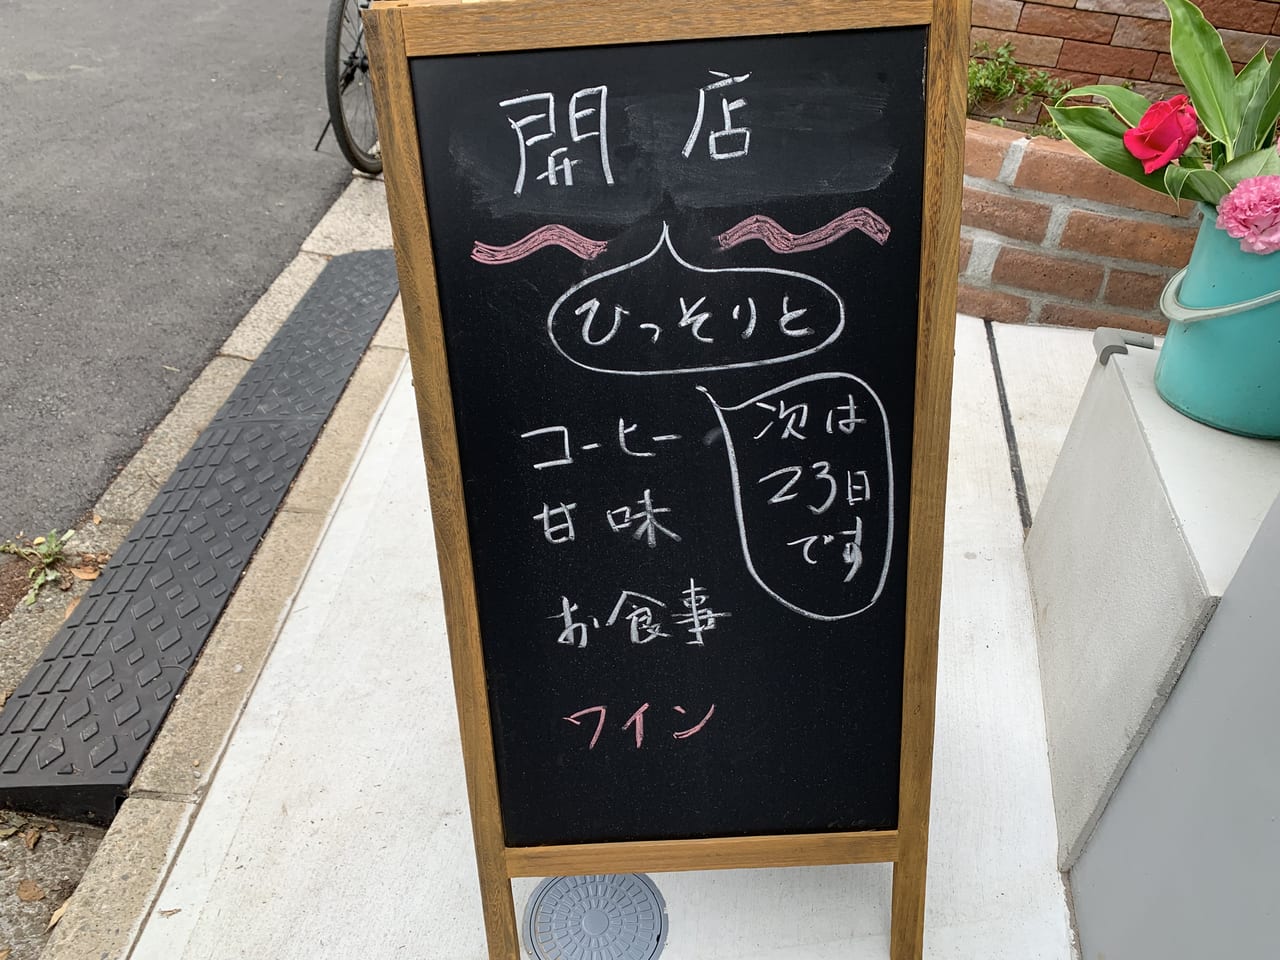 開店
ひっそりと
コーヒー
甘味
お食事
ワイン
次は
23日
です